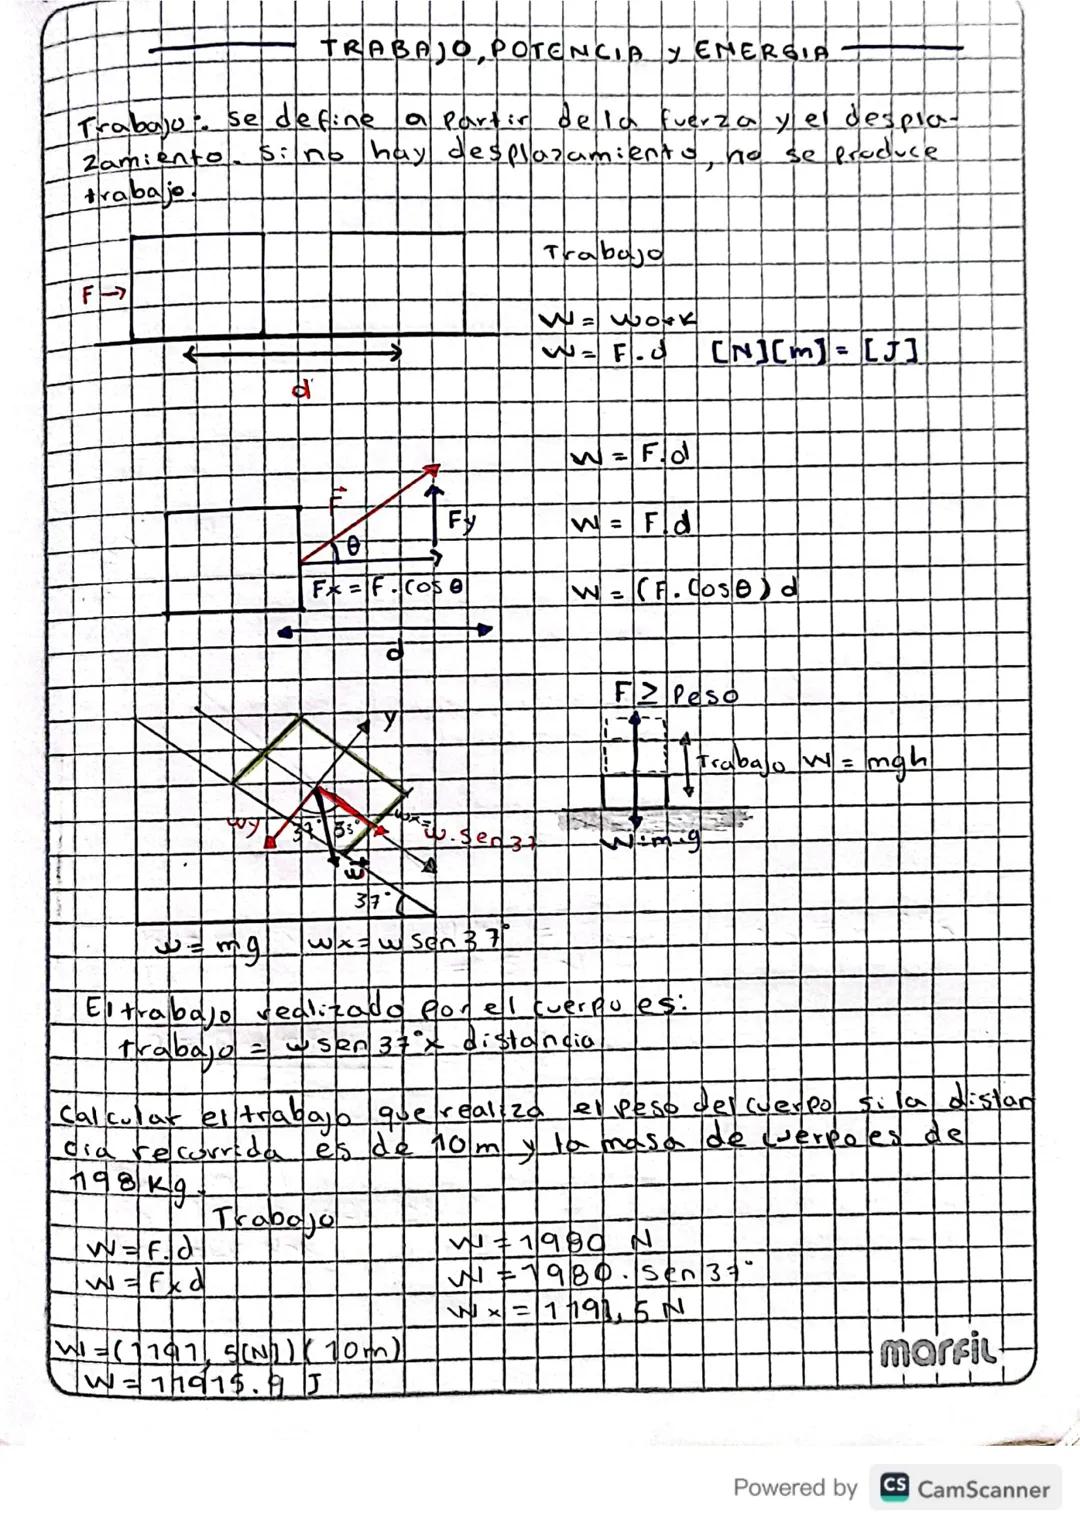 TRABAJO, POTENCIA y ENERGIA
Trabajo: se define a partir de la fuerza y el despla-
zamiento. Si no hay desplazamiento, no se produce
trabajo.
F →
d
Trabajo
W = Work
W = F.d [N][m] = [J]
F
θ
Fy
Fx = F.Cos θ
d
W = F.d
W = F.d
W = (F.Cosθ) d
y
wy
37°
wx=
w.sen 37
w
37°
w = mg wx = w sen 37°
F ≥ Peso
Trabajo W = mgh
W=m.g
El trabajo realizado por el cuerpo es:
trabajo = w sen 37° x distancia
Calcular el trabajo que realiza el peso del cuerpo si la distan
cia recorrida es de 10m y la masa de cuerpo es de
198 Kg.
Trabajo
W = F.d
W = Fxd
W = 1980 N
W = 1980. Sen 37°
Wx = 1191,5 N
W = (1191,5[N])(10m)
W = 11915.9 J
marfil
Powered by CS CamScanner